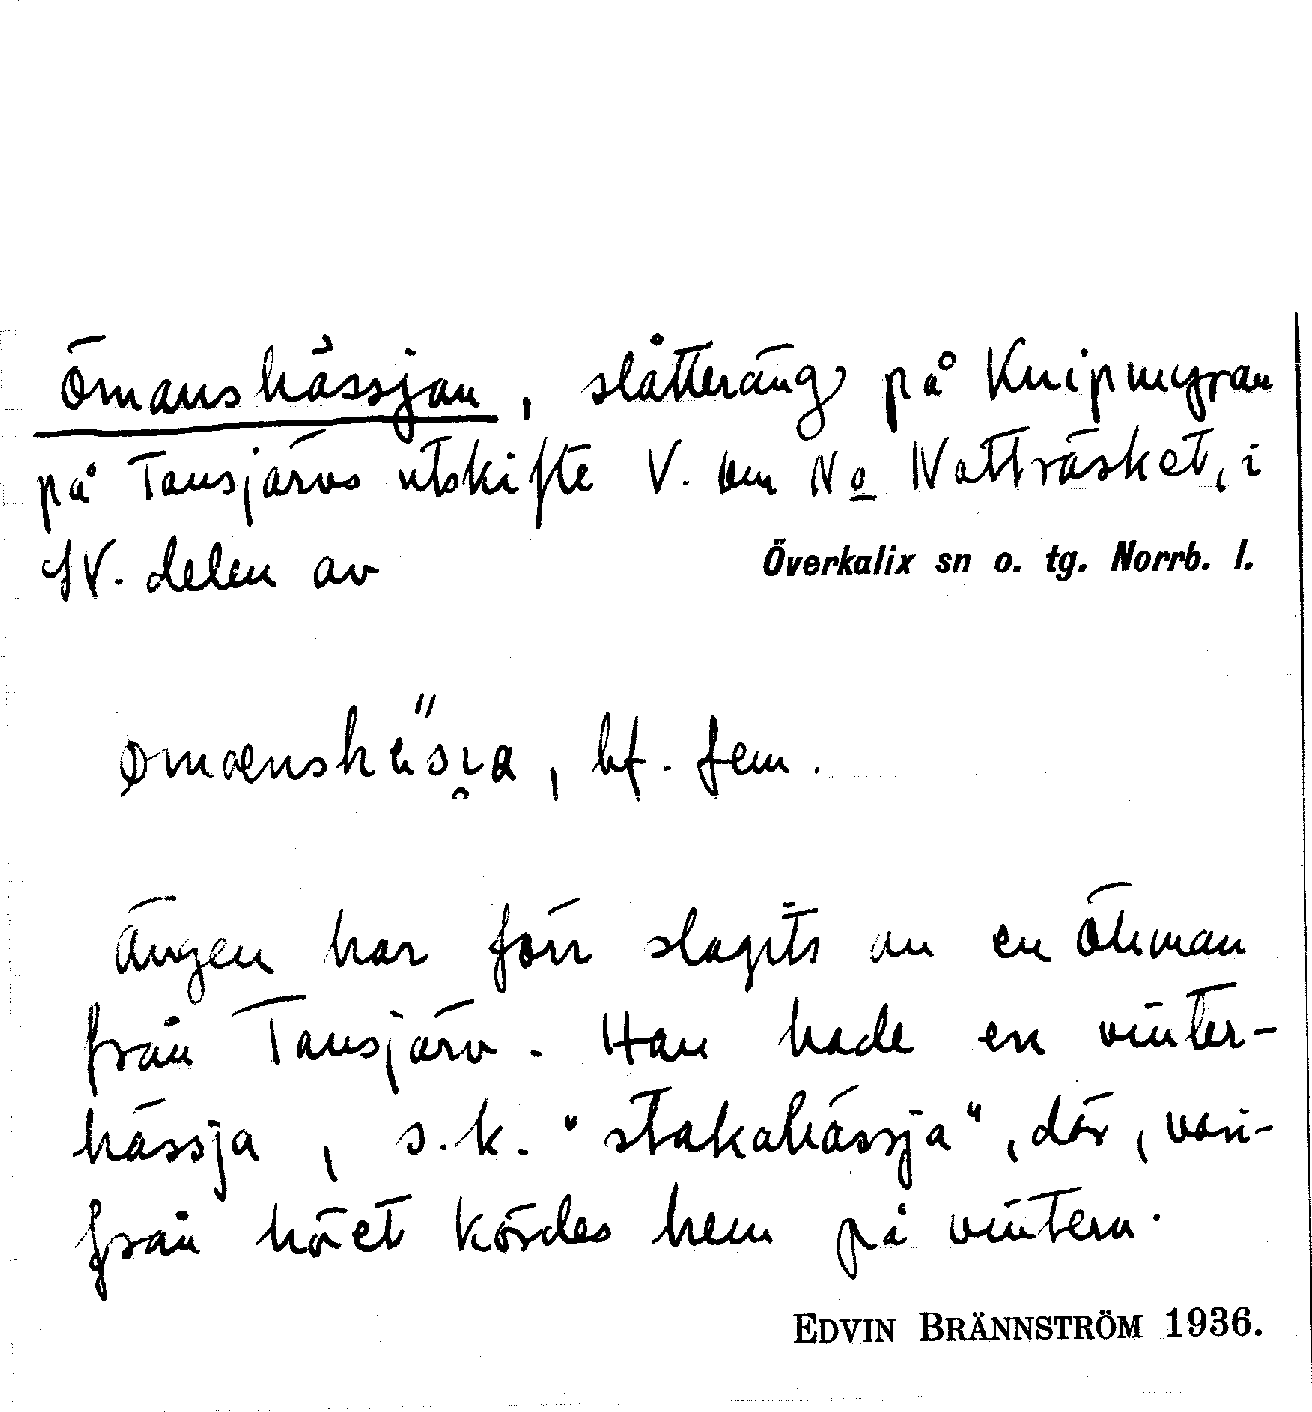 Ömanshässjan, slåtteräng på Knipmyran
på Tansjärvs utskifte V. om No Nattträsket, i
SV. delen av Överkalix sn o. tg. Norrb. l.
bf. fem.
Ängen har förr slagits av en Öhman
från Tansjärv. Han hade en vinter-
hässja, s.k. "stakahässja", där, vari-
från höet kördes hem på vintern.
EDVIN BRÄNNSTRÖM 1936.